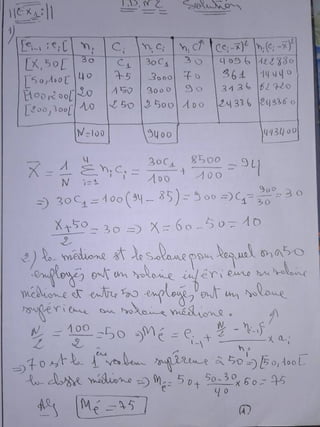 T.D. N°2 Solution
||ex1:||
1)
[e_{i-1}; e_i[ n_i C_i n_i C_i n_i C^ (c_i-x̄)² n_i(c_i-x̄)²
[X,50[ 30 C1 30C1 30 4096 122880
[50,100[ 40 75 3000 70 361 14440
[100,200[ 20 150 3000 90 3136 62720
[200,300[ 10 250 2500 100 24336 243360
N=100 9400 443400
X̄ = 1/N Σ_{i=1}^{4} n_i c_i = 30C1/100 + 8500/100 = 94
⇒ 30C1 = 100(94-85) = 900 ⇒ C1 = 900/30 = 30
X+50/2 = 30 ⇒ X = 60-50 = 10
2) la médiane est le salaire pour lequel on a 50
employés ont un salaire inférieure au salaire
médiane et entre 50 employés, ont un salaire
supérieure au salaire médiane.
N/2 = 100/2 = 50 ⇒ Mé = e_{i-1} + (N/2 - n_{i-1}↑)/n_i × a_i
⇒ 70 est la 1ère valeur supérieure à 50 ⇒ [50,100[
la classe médiane ⇒ Mé = 50 + 50-30/40 × 50 = 75
Mé = 75